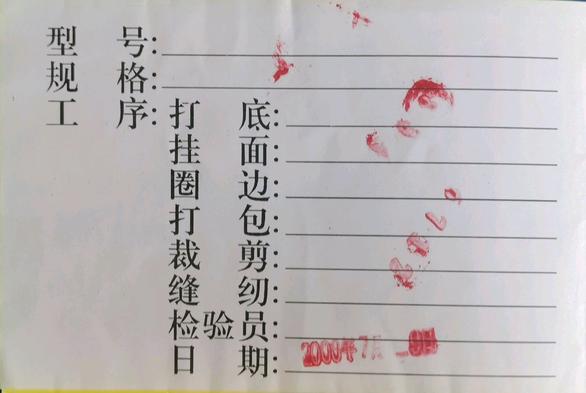 型 号:
规 格:
工 序:打 底:
挂 面:
圈 边:
打 包:
裁 剪:
缝 纫:
检验员:
日 期:2000年7月